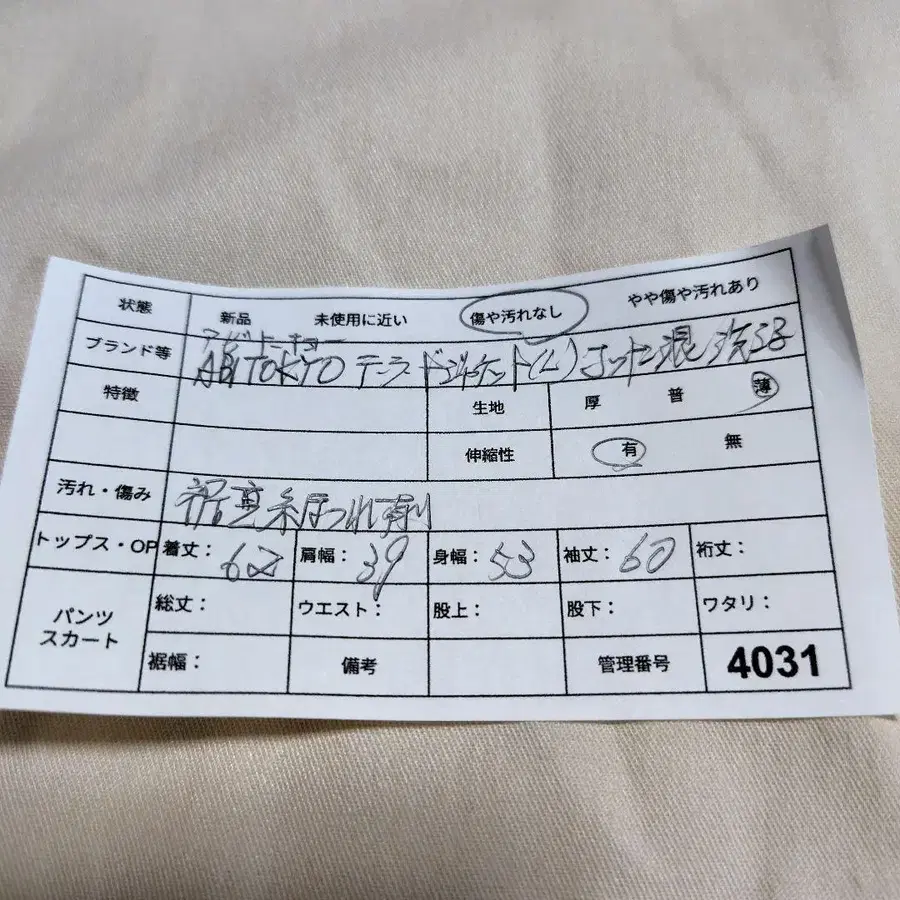 状態 新品 未使用に近い 傷や汚れなし やや傷や汚れあり
アビトーキョー
ブランド等 ABITOKYO テーラードジャケット(L) コットン混
特徴 生地 厚 普 薄
伸縮性 有 無
汚れ・傷み 裾裏糸ほつれ有り
トップス・OP 着丈： 62 肩幅： 39 身幅： 53 袖丈： 60 裄丈：
パンツ スカート 総丈： ウエスト： 股上： 股下： ワタリ：
裾幅： 備考 管理番号 4031